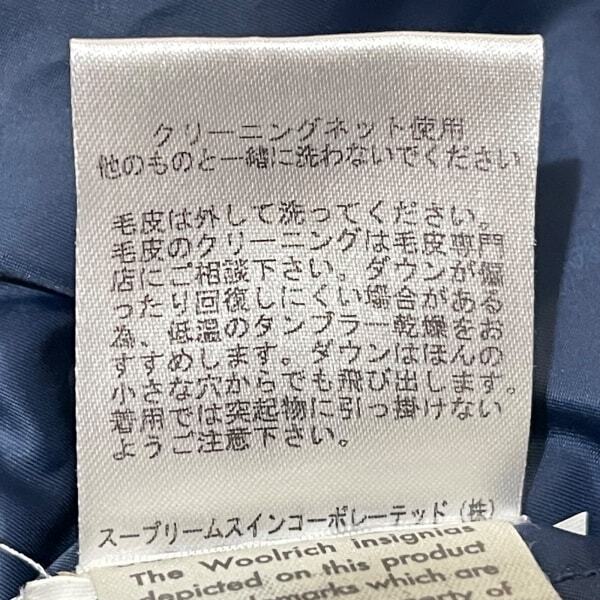 クリーニングネット使用
他のものと一緒に洗わないでください
毛皮は外して洗ってください。
毛皮のクリーニングは毛皮専門
店にご相談下さい。ダウンが偏
ったり回復しにくい場合がある
為、低温のタンブラー乾燥をお
すすめします。ダウンはほんの
小さな穴からでも飛び出します。
着用では突起物に引っ掛けない
ようご注意下さい。
スープリームスインコーポレーテッド（株）
The Woolrich insignias
depicted on this product
marks which are
erty of